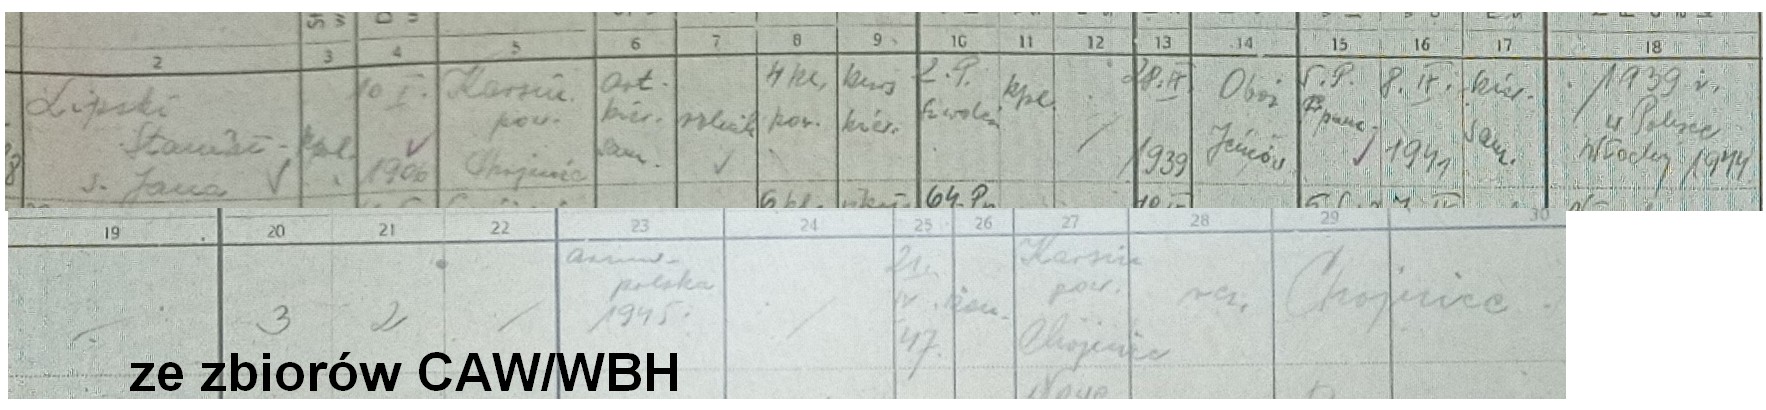 2 3 4 5 6 7 8 9 10 11 12 13 14 15 16 17 18
Lipski 10 I. Karsin art. 4 kl. kurs 2. P. kpr. 28.IX Obóz 5.P. 8. IX. kier. 1939 r.
Stanisł- kpr. pow. kier. rolnik pow. kier. Jeńców Ppanc. sam. w Polsce
s. Jana 1906 Chojnice sam. 1939 1941 Włochy 1944
6 kl. 64. P.
19 20 21 22 23 24 25 26 27 28 29 30
armia 21. Karsin
polska IV kaw. pow. rz. Chojnice
3 2 1945. 47. Chojnice
ze zbiorów CAW/WBH